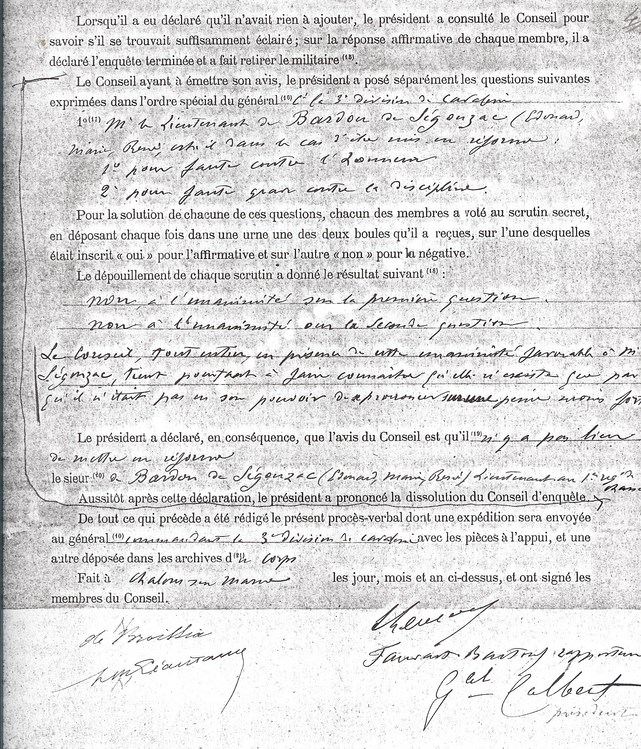 Lorsqu'il a eu déclaré qu'il n'avait rien à ajouter, le président a consulté le Conseil pour
savoir s'il se trouvait suffisamment éclairé ; sur la réponse affirmative de chaque membre, il a
déclaré l'enquête terminée et a fait retirer le militaire (15).
Le Conseil ayant à émettre son avis, le président a posé séparément les questions suivantes
exprimées dans l'ordre spécial du général (16) Ct la 3e division de cavalerie
1o (17) Mr le Lieutenant de Bardon de Ségonzac (Edouard,
Marie, René) est-il dans le cas d'être mis en réforme :
1o pour faute contre l'honneur
2o pour faute grave contre la discipline.
Pour la solution de chacune de ces questions, chacun des membres a voté au scrutin secret,
en déposant chaque fois dans une urne une des deux boules qu'il a reçues, sur l'une desquelles
était inscrit « oui » pour l'affirmative et sur l'autre « non » pour la négative.
Le dépouillement de chaque scrutin a donné le résultat suivant (18) :
non, à l'unanimité sur la première question.
non à l'unanimité sur la seconde question
Le Conseil, tout entier, en présence de cette unanimité favorable à
Ségonzac, tient pourtant à faire connaître qu'elle n'existe que par
qu'il n'était pas en son pouvoir de prononcer une peine moins
Le président a déclaré, en conséquence, que l'avis du Conseil est qu'il (19) n'y a pas lieu
de mettre en réforme
le sieur (20) de Bardon de Ségonzac (Edouard, Marie, René) Lieutenant au 1er
Aussitôt après cette déclaration, le président a prononcé la dissolution du Conseil d'enquête.
De tout ce qui précède a été rédigé le présent procès-verbal dont une expédition sera envoyée
au général commandant la 3e division de cavalerie avec les pièces à l'appui, et une
autre déposée dans les archives du corps
Fait à Chalons sur Marne les jour, mois et an ci-dessus, et ont signé les
membres du Conseil.
rapporteur
Gal Calbert
président